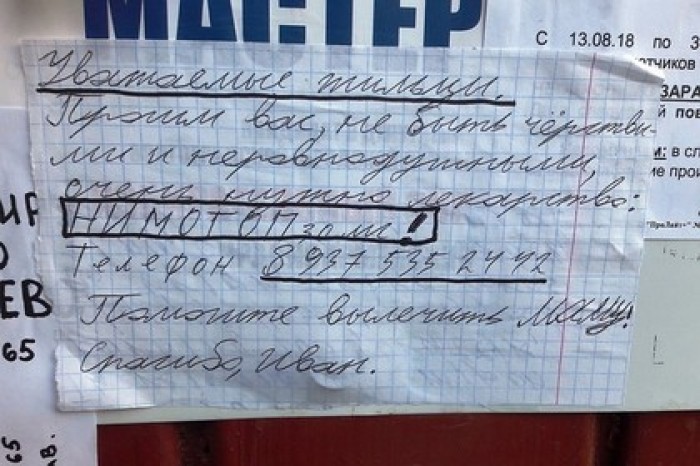 МАСТЕР
С 13.08.18 по 3
отчиков
ЗАРА
й пов
м: в сл
ие прои
Уважаемые жильцы.
Просим вас, не быть чёрстви-
ми и неравнодушными,
очень нужно лекарство:
НИМОТОП, 30 мг!
Телефон 8 937 535 24 42
Помогите вылечить маму!
Спасибо, Иван.
ИР
О
ЕВ
65
65
ОВ.